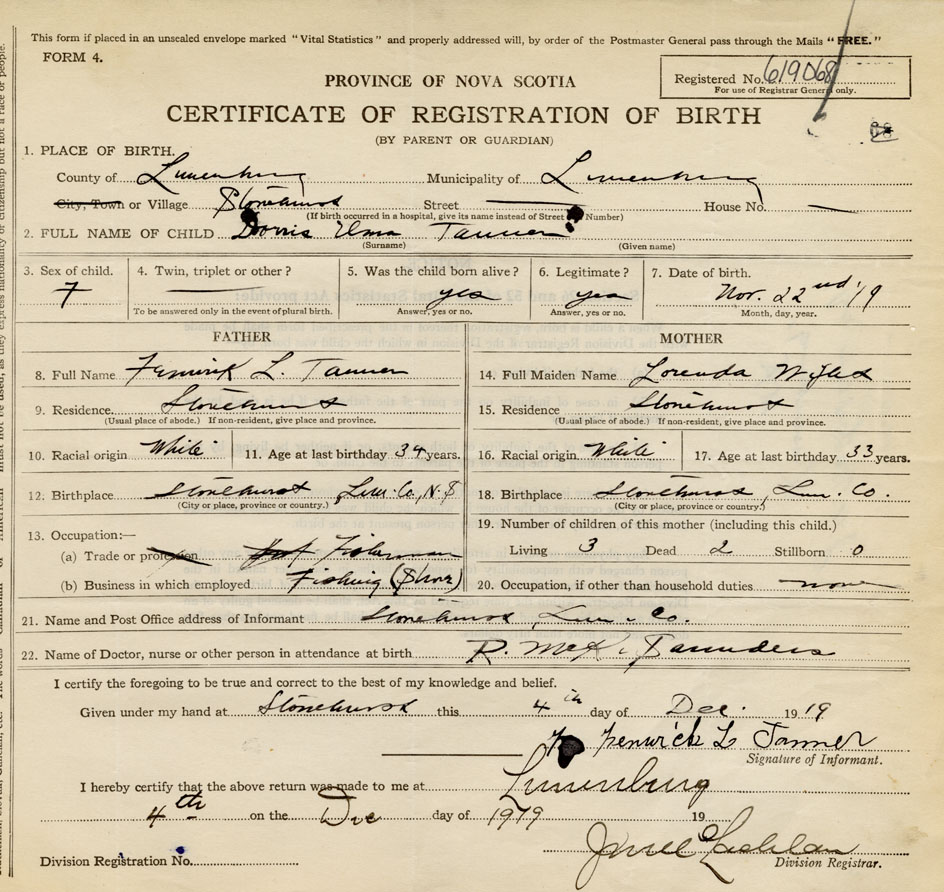 This form if placed in an unsealed envelope marked "Vital Statistics" and properly addressed will, by order of the Postmaster General pass through the Mails "FREE."
FORM 4.
PROVINCE OF NOVA SCOTIA
Registered No. 619068
For use of Registrar General only.
CERTIFICATE OF REGISTRATION OF BIRTH
68
(BY PARENT OR GUARDIAN)
1. PLACE OF BIRTH.
County of Lunenburg Municipality of Lunenburg
City, Town or Village Stonehurst Street House No.
(If birth occurred in a hospital, give its name instead of Street Number)
2. FULL NAME OF CHILD Dorris Elma Tanner
(Surname) (Given name)
3. Sex of child. 4. Twin, triplet or other? 5. Was the child born alive? 6. Legitimate? 7. Date of birth.
F yes yes Nov. 22nd, 19
To be answered only in the event of plural birth. Answer, yes or no. Answer, yes or no. Month, day, year.
FATHER MOTHER
8. Full Name Fenwick L. Tanner 14. Full Maiden Name Lorenda
9. Residence. Stonehurst 15. Residence Stonehurst
(Usual place of abode.) If non-resident, give place and province. (Usual place of abode.) If non-resident, give place and province.
10. Racial origin White 11. Age at last birthday 34 years. 16. Racial origin White 17. Age at last birthday 33 years.
12. Birthplace Stonehurst, Lun. Co, N.S 18. Birthplace Stonehurst, Lun. Co.
(City or place, province or country.) (City or place, province or country.)
13. Occupation:— 19. Number of children of this mother (including this child.)
(a) Trade or profession Fisherman Living 3 Dead 2 Stillborn 0
(b) Business in which employed Fishing (Shore) 20. Occupation, if other than household duties. none
21. Name and Post Office address of Informant Stonehurst, Lun. Co.
22. Name of Doctor, nurse or other person in attendance at birth R. McK. Saunders
I certify the foregoing to be true and correct to the best of my knowledge and belief.
Given under my hand at Stonehurst this 4th day of Dec. 1919
Fenwick L Tanner
Signature of Informant.
I hereby certify that the above return was made to me at Lunenburg
4th on the Dec day of 1919 19
Division Registration No. Division Registrar.